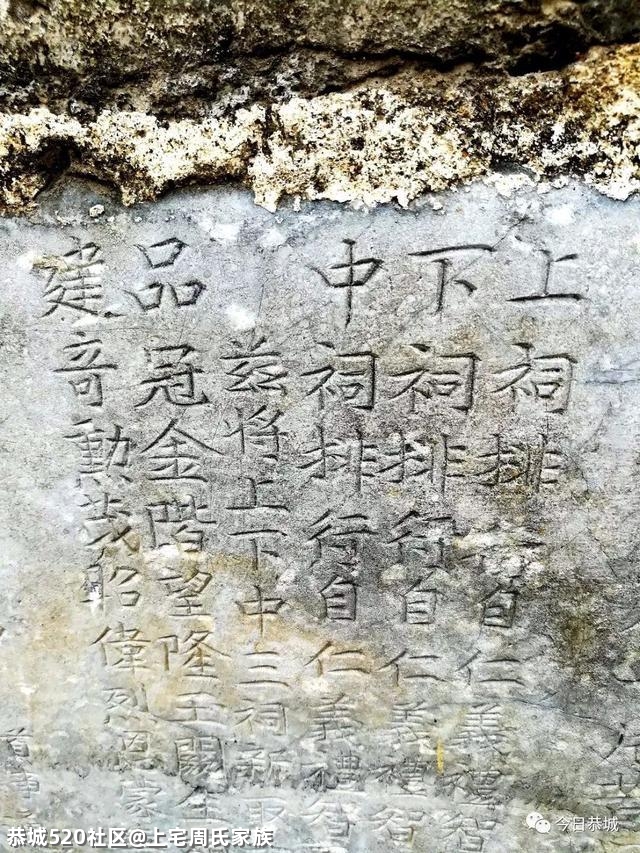 上祠排行自仁義禮智
下祠排行自仁義禮智
中祠排行自仁義禮智
茲將上下中三祠新
品冠金階望隆玉闕
建奇勳茂昭偉烈恩蒙
首事
今日恭城
恭城520社区@上宅周氏家族